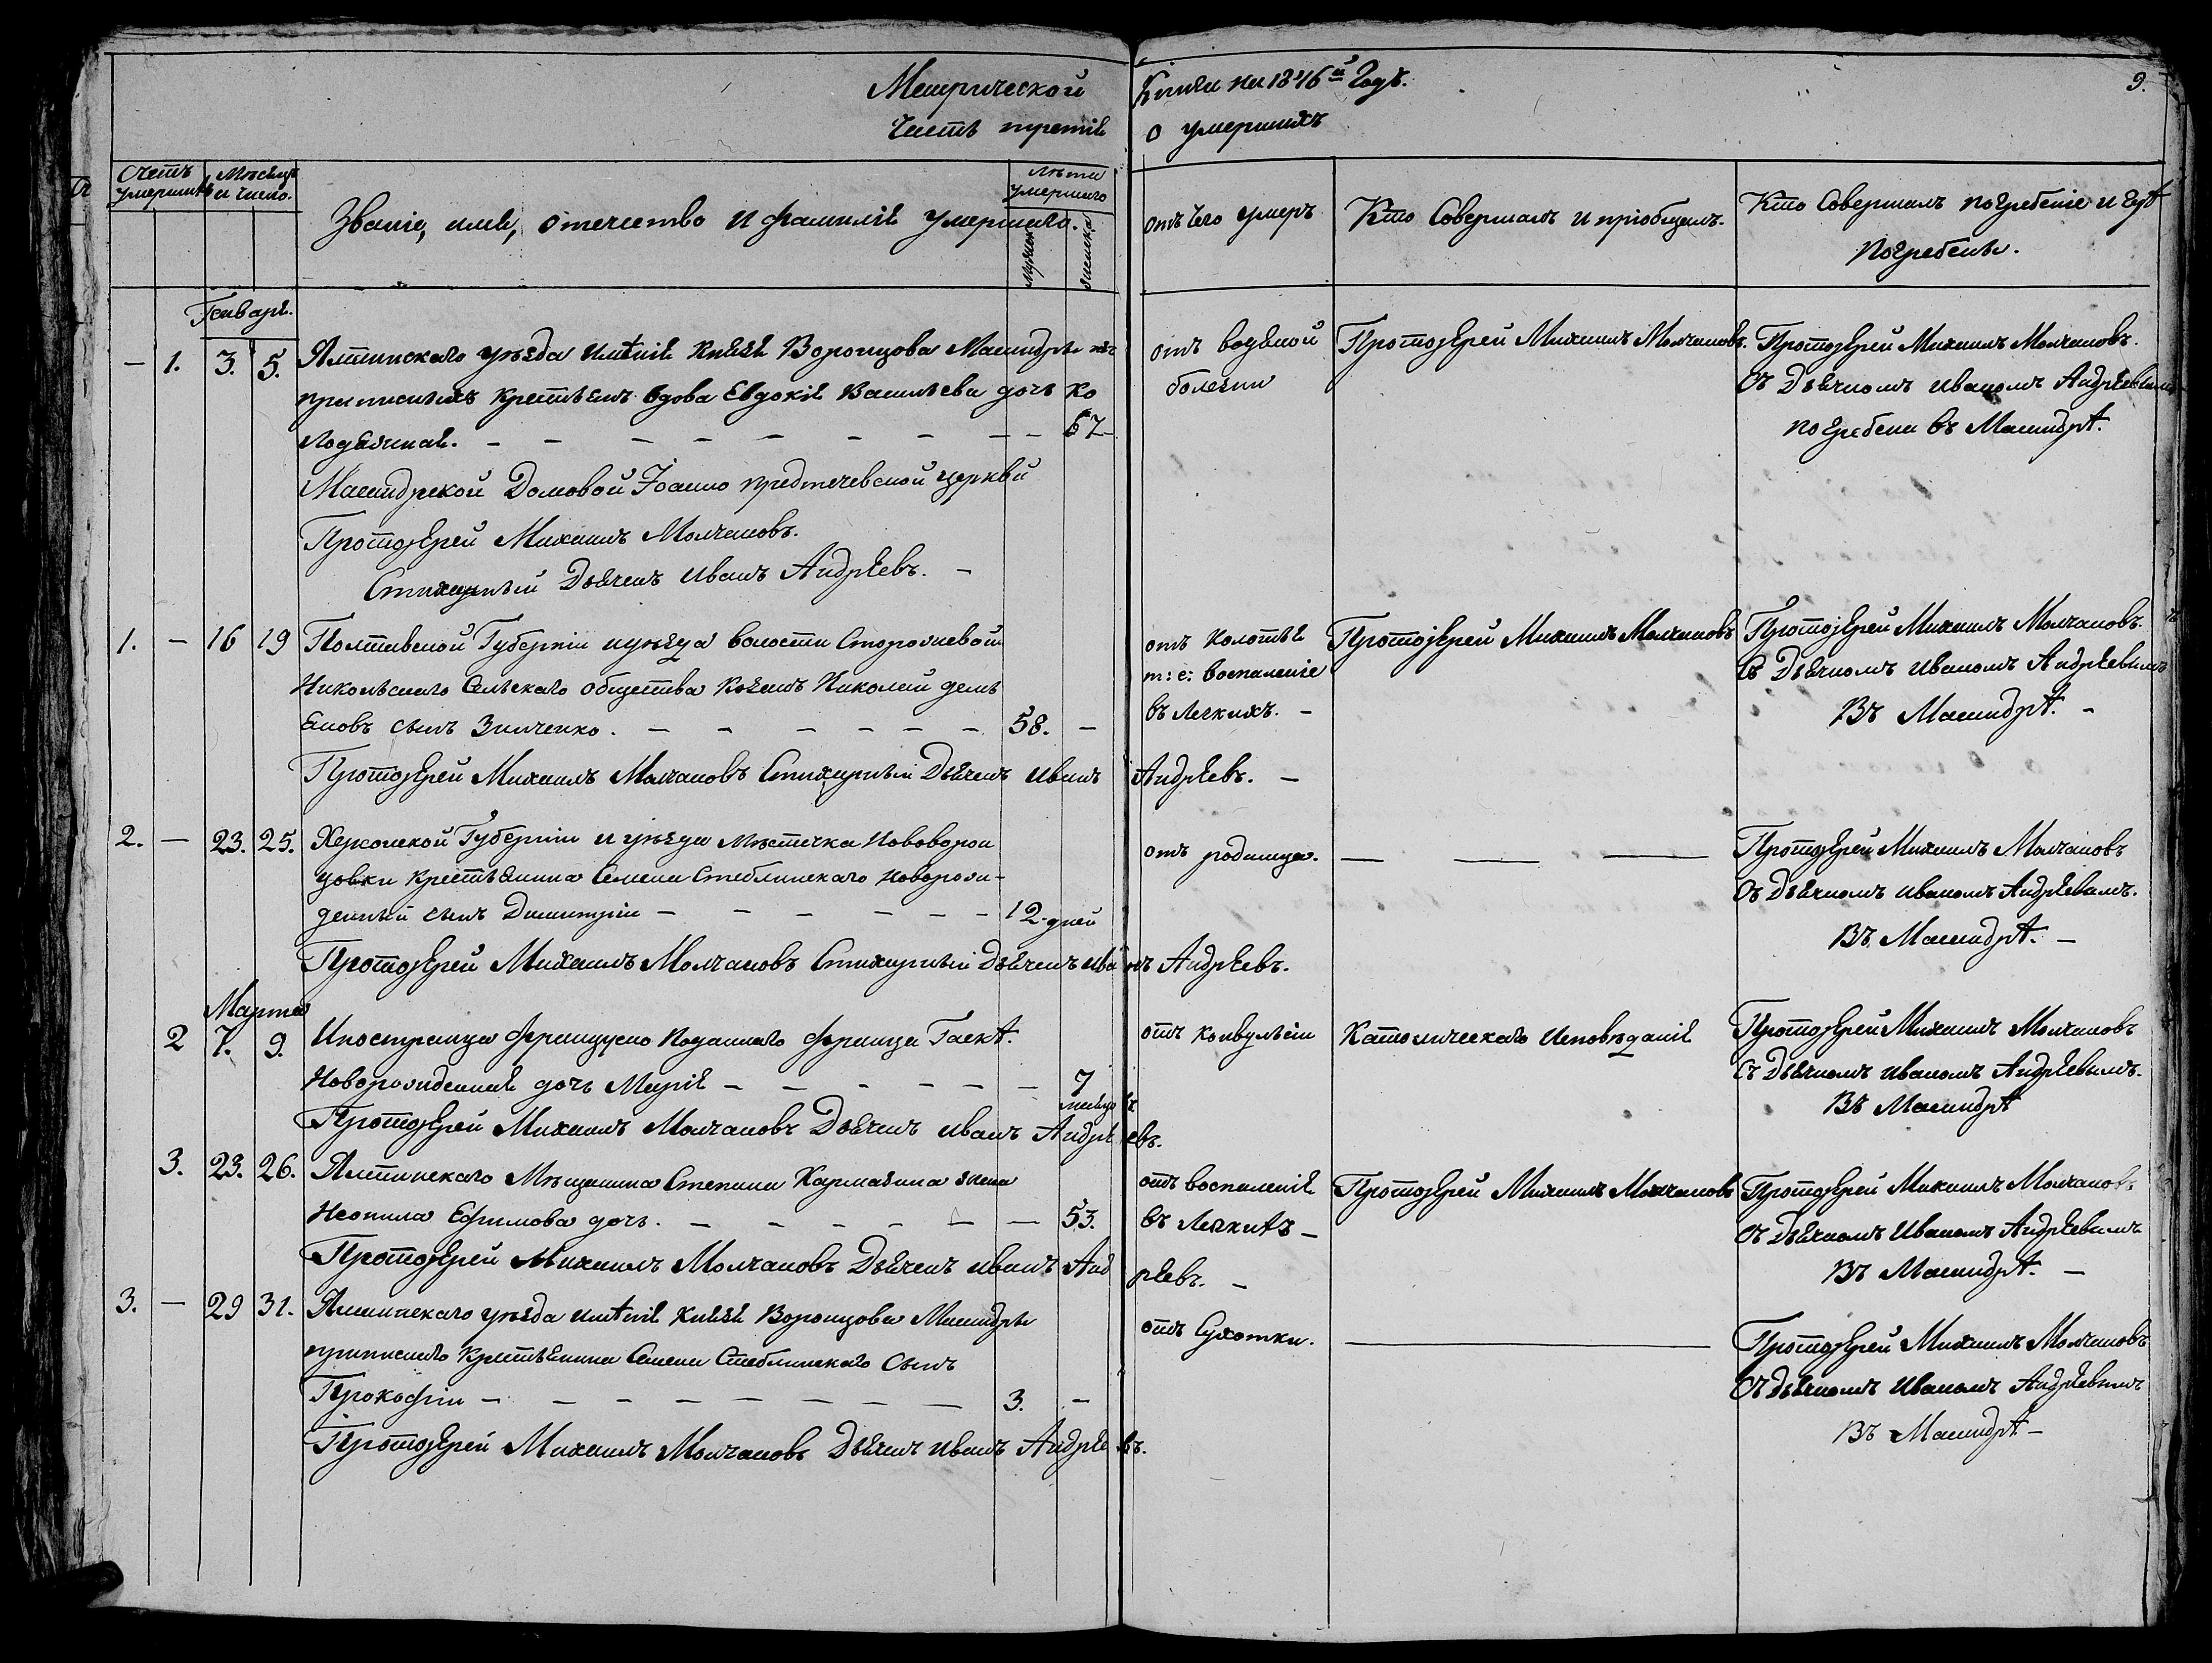 Метрической Книги на 1846й Годъ.
9.
Часть третія о умершихъ
Счетъ умершихъ
Мѣсяцъ и число.
Званіе, имя, отечество и фамилія умершаго.
Лѣта умершаго
мужеск
женска
отъ чего умеръ
Кто Совершалъ и пріобщалъ.
Кто Совершалъ погребеніе и гдѣ
Погребены.
Генваря.
— 1. 3. 5. Ялтинскаго уѣзда имѣнія Князя Воронцова Массандры изъ
приписныхъ крестьянъ вдова Евдокія Васильева дочь Ко
лодяжная. — 67—
отъ водяной
болезни
Протоіерей Михаилъ Молчановъ.
Протоіерей Михаилъ Молчановъ.
Съ Дьячкомъ Иваномъ Андрѣевымъ
погребена въ Массандрѣ.
Массандрской Домовой Іоанно предтечевской церкви
Протоіерей Михаилъ Молчановъ.
Стихарный Дьячекъ Иванъ Андрѣевъ. —
1. — 16 19 Полтавской Губерніи и уѣзда волости Сторожевой
Никольскаго Сельскаго общества Козакъ Николай Демь
яновъ сынъ Зинченко. — 58. —
отъ колотья
т: е: воспаленіе
въ легкихъ. —
Протоіерей Михаилъ Молчановъ
Протоіерей Михаилъ Молчановъ.
Съ Дьячкомъ Иваномъ Андрѣевымъ
Въ Массандрѣ. —
Протоіерей Михаилъ Молчановъ Стихарный Дьячекъ Иванъ Андрѣевъ. —
2. — 23. 25. Херсонской Губерніи и уѣзда мѣстечка Нововорон
цовки крестьянина Семена Стеблинскаго новорож-
денный сынъ Димитрій — 12 дней
отъ родимца. — — —
Протоіерей Михаилъ Молчановъ
Съ Дьячкомъ Иваномъ Андрѣевымъ.
Въ Массандрѣ. —
Протоіерей Михаилъ Молчановъ Стихарный Дьячекъ Иванъ Андрѣевъ.
Марта
2 7. 9. Иностранца французко подданаго франца Гаскѣ.
Новорожденная дочь Марія — 7
месяцовъ
отъ конвульсіи
Католическаго Исповѣданія
Протоіерей Михаилъ Молчановъ
Съ Дьячкомъ Иваномъ Андрѣевымъ.
Въ Массандрѣ
Протоіерей Михаилъ Молчановъ Дьячекъ Иванъ Андрѣевъ.
3. 23. 26. Ялтинскаго Мѣщанина Степана Кармазина жена
Неонила Ефимова дочь. — 53.
отъ воспаленія
въ Легкихъ —
Протоіерей Михаилъ Молчановъ
Протоіерей Михаилъ Молчановъ
Съ Дьячкомъ Иваномъ Андрѣевымъ
Въ Массандрѣ. —
Протоіерей Михаилъ Молчановъ Дьячекъ Иванъ Андрѣевъ. —
3. — 29 31. Ялтинскаго уѣзда имѣнія Князя Воронцова Массандры
приписнаго Крестьянина Семена Стеблинскаго сынъ
Прокофій — 3. —
отъ Сухотки. —
Протоіерей Михаилъ Молчановъ
Съ Дьячкомъ Иваномъ Андрѣевымъ
Въ Массандрѣ —
Протоіерей Михаилъ Молчановъ Дьячекъ Иванъ Андрѣевъ.